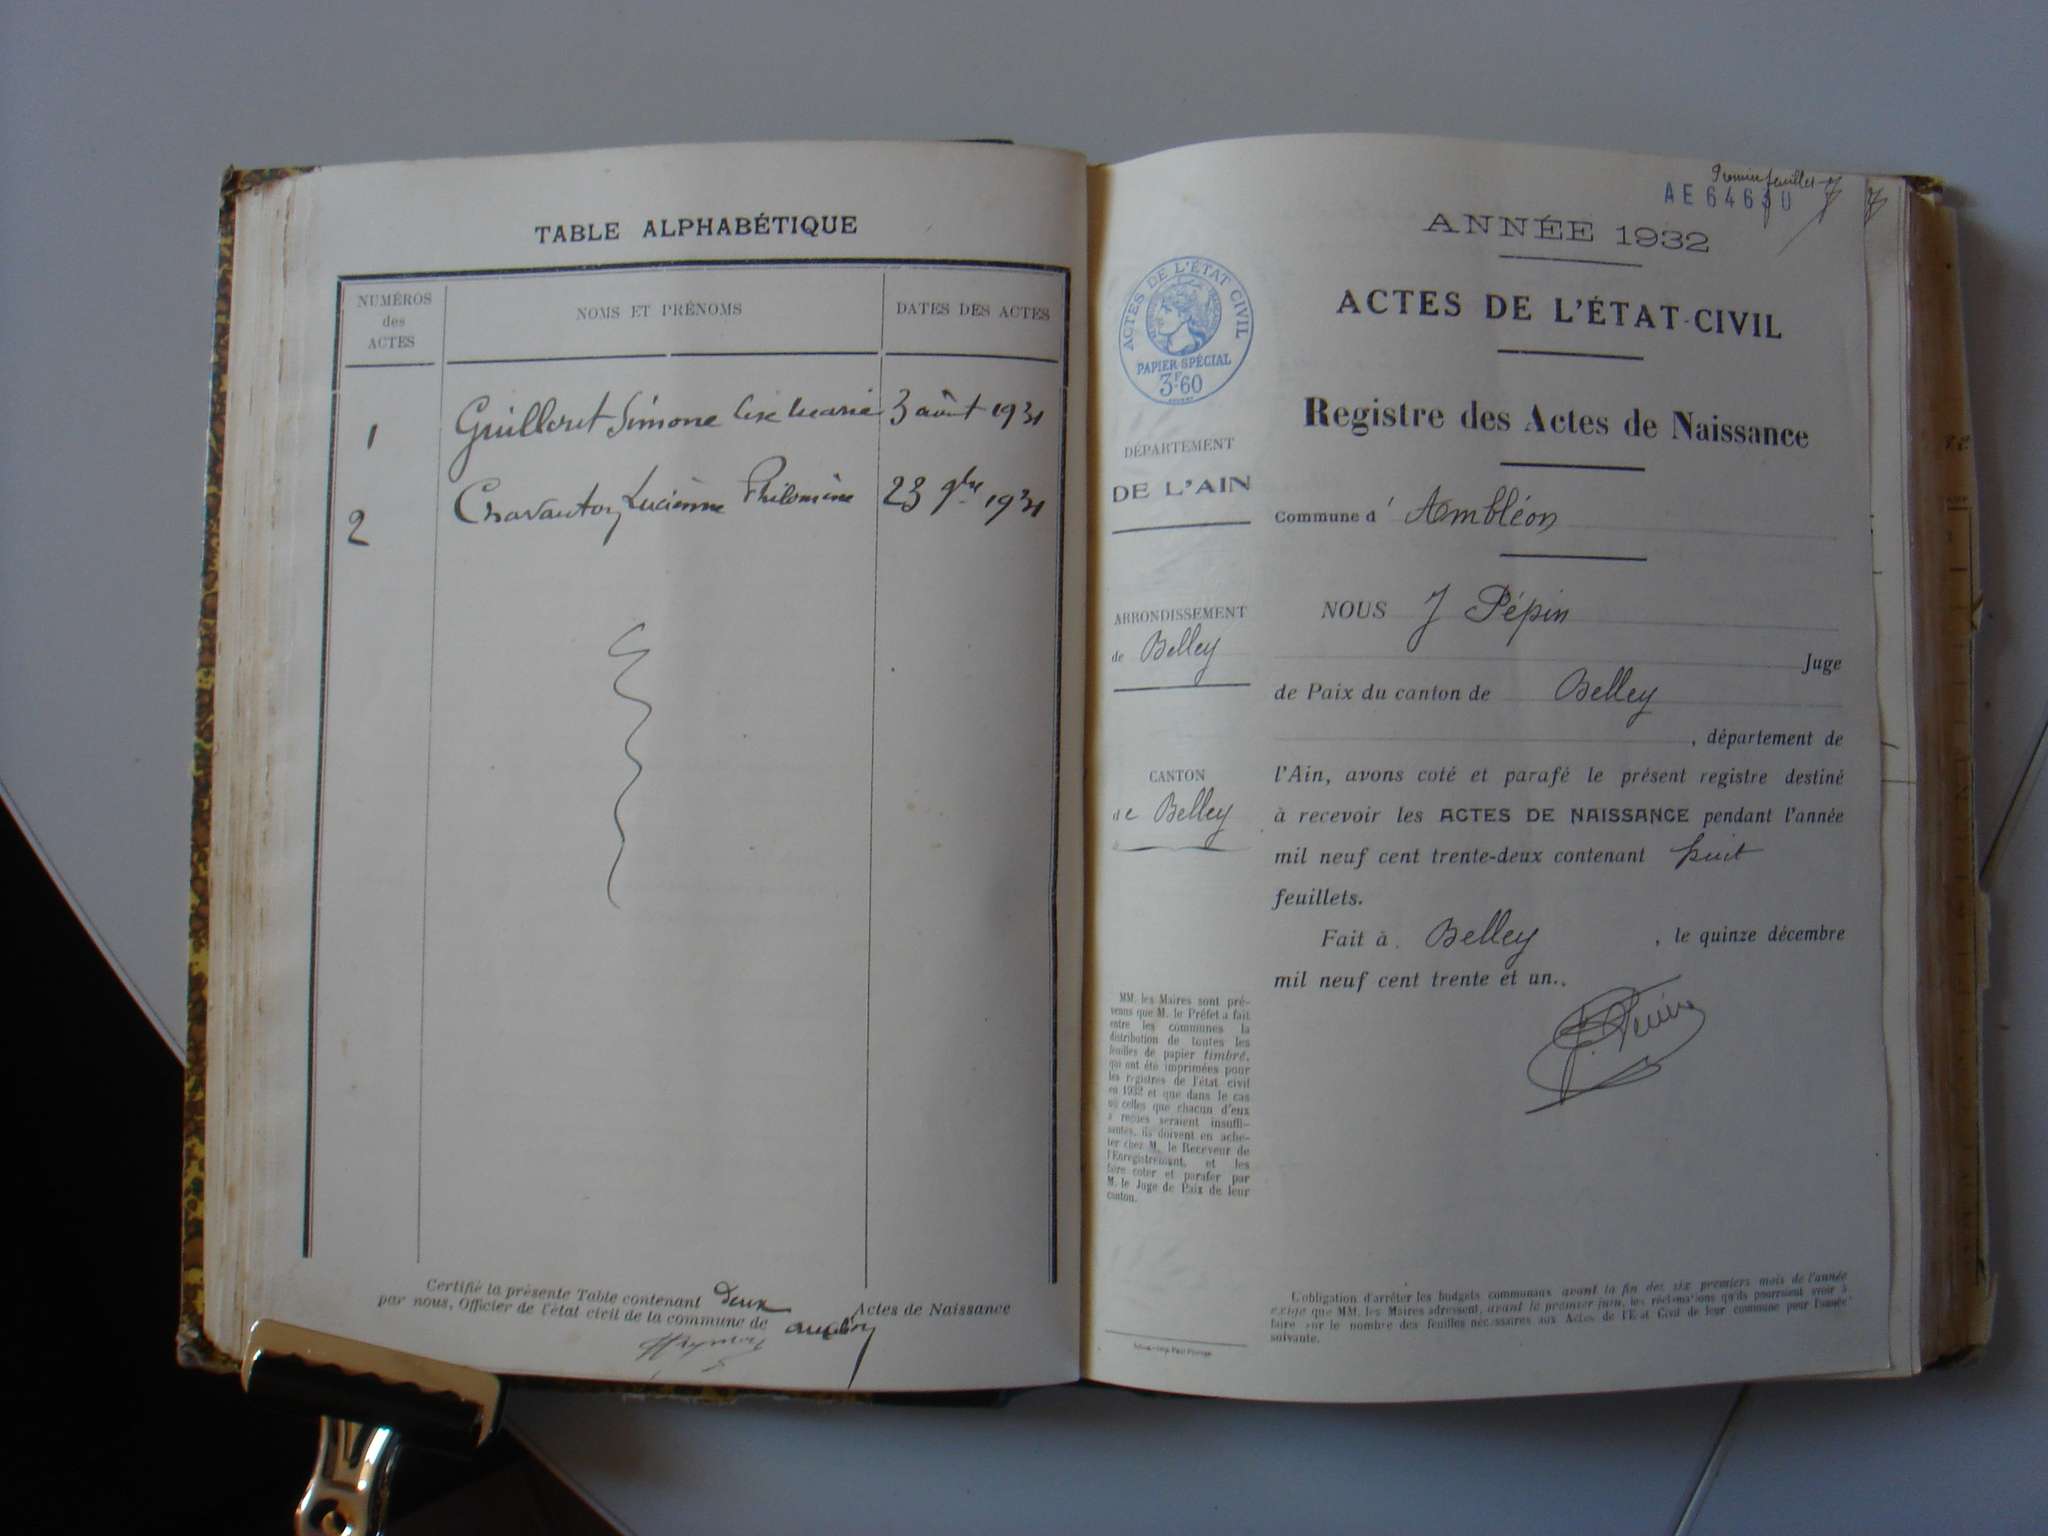 TABLE ALPHABÉTIQUE
NUMÉROS
des
ACTES
NOMS ET PRÉNOMS
DATES DES ACTES
1 Guilleret Simone Lise Marie 3 août 1931
2 Chavanton Lucienne Philomène 23 9bre 1931
Certifié la présente Table contenant deux Actes de Naissance
par nous, Officier de l'état civil de la commune de
Premier feuillet
AE 64630
ANNÉE 1932
ACTES DE L'ÉTAT-CIVIL
Registre des Actes de Naissance
ACTES DE L'ÉTAT CIVIL
PAPIER SPÉCIAL
3F60
DÉPARTEMENT
DE L'AIN
ARRONDISSEMENT
de Belley
CANTON
de Belley
MM. les Maires sont pré-
venus que M. le Préfet a fait
entre les communes la
distribution de toutes les
feuilles de papier timbré,
qui ont été imprimées pour
les registres de l'état civil
en 1932 et que dans le cas
où celles que chacun d'eux
a reçues seraient insuffi-
santes, ils doivent en ache-
ter chez M. le Receveur de
l'Enregistrement, et les
faire coter et parafer par
M. le Juge de Paix de leur
canton.
Commune d' Ambléon
NOUS J Pépin
Juge
de Paix du canton de Belley
, département de
l'Ain, avons coté et parafé le présent registre destiné
à recevoir les ACTES DE NAISSANCE pendant l'année
mil neuf cent trente-deux contenant huit
feuillets.
Fait à Belley, le quinze décembre
mil neuf cent trente et un.
L'obligation d'arrêter les budgets communaux avant la fin des six premiers mois de l'année
exige que MM. les Maires adressent, avant le premier juin, les réclamations qu'ils pourraient avoir à
faire sur le nombre des feuilles nécessaires aux Actes de l'Etat Civil de leur commune pour l'année
suivante.